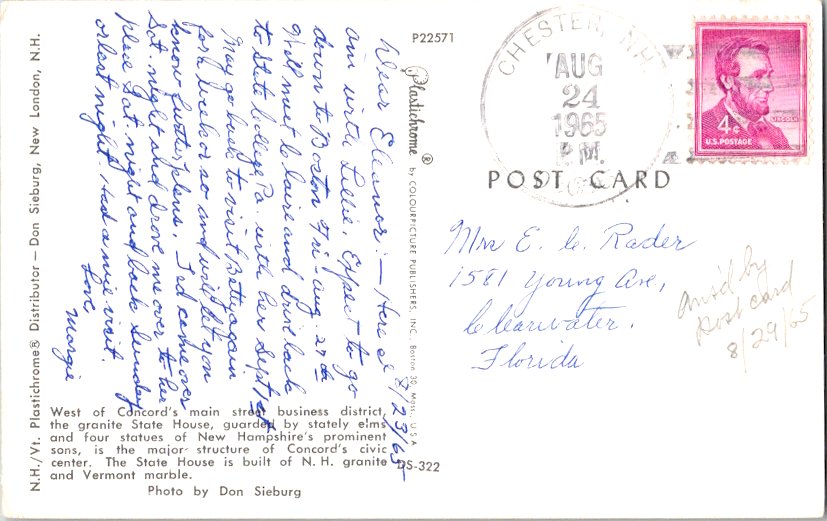 P22571
CHESTER, N.H.
AUG
24
1965
P.M.
4¢
LINCOLN
U.S. POSTAGE
POST CARD
Mrs E. C. Rader
1581 Young Ave,
Clearwater,
Florida
Ans'd by
Post card
8/29/65
8/23/65
Dear Eleanor:— Here I
am with Lillie. Expect to go
down to Boston Fri - Aug. 27th
Will meet Claire and drive back
to State College Pa. with her Sept 1st
May go back to visit Betty again
for a week or so and will let you
know further plans. Ted came over
Sat. night and drove me over to her
place Sat. night and back Sunday
night. Had a nice visit.
Love,
Margie
Plastichrome ® by COLOURPICTURE PUBLISHERS, INC. Boston 30, Mass. U.S.A
N.H./Vt. Plastichrome® Distributor — Don Sieburg, New London, N.H.
West of Concord's main street business district,
the granite State House, guarded by stately elms
and four statues of New Hampshire's prominent
sons, is the major structure of Concord's civic
center. The State House is built of N. H. granite
and Vermont marble.
Photo by Don Sieburg
DS-322